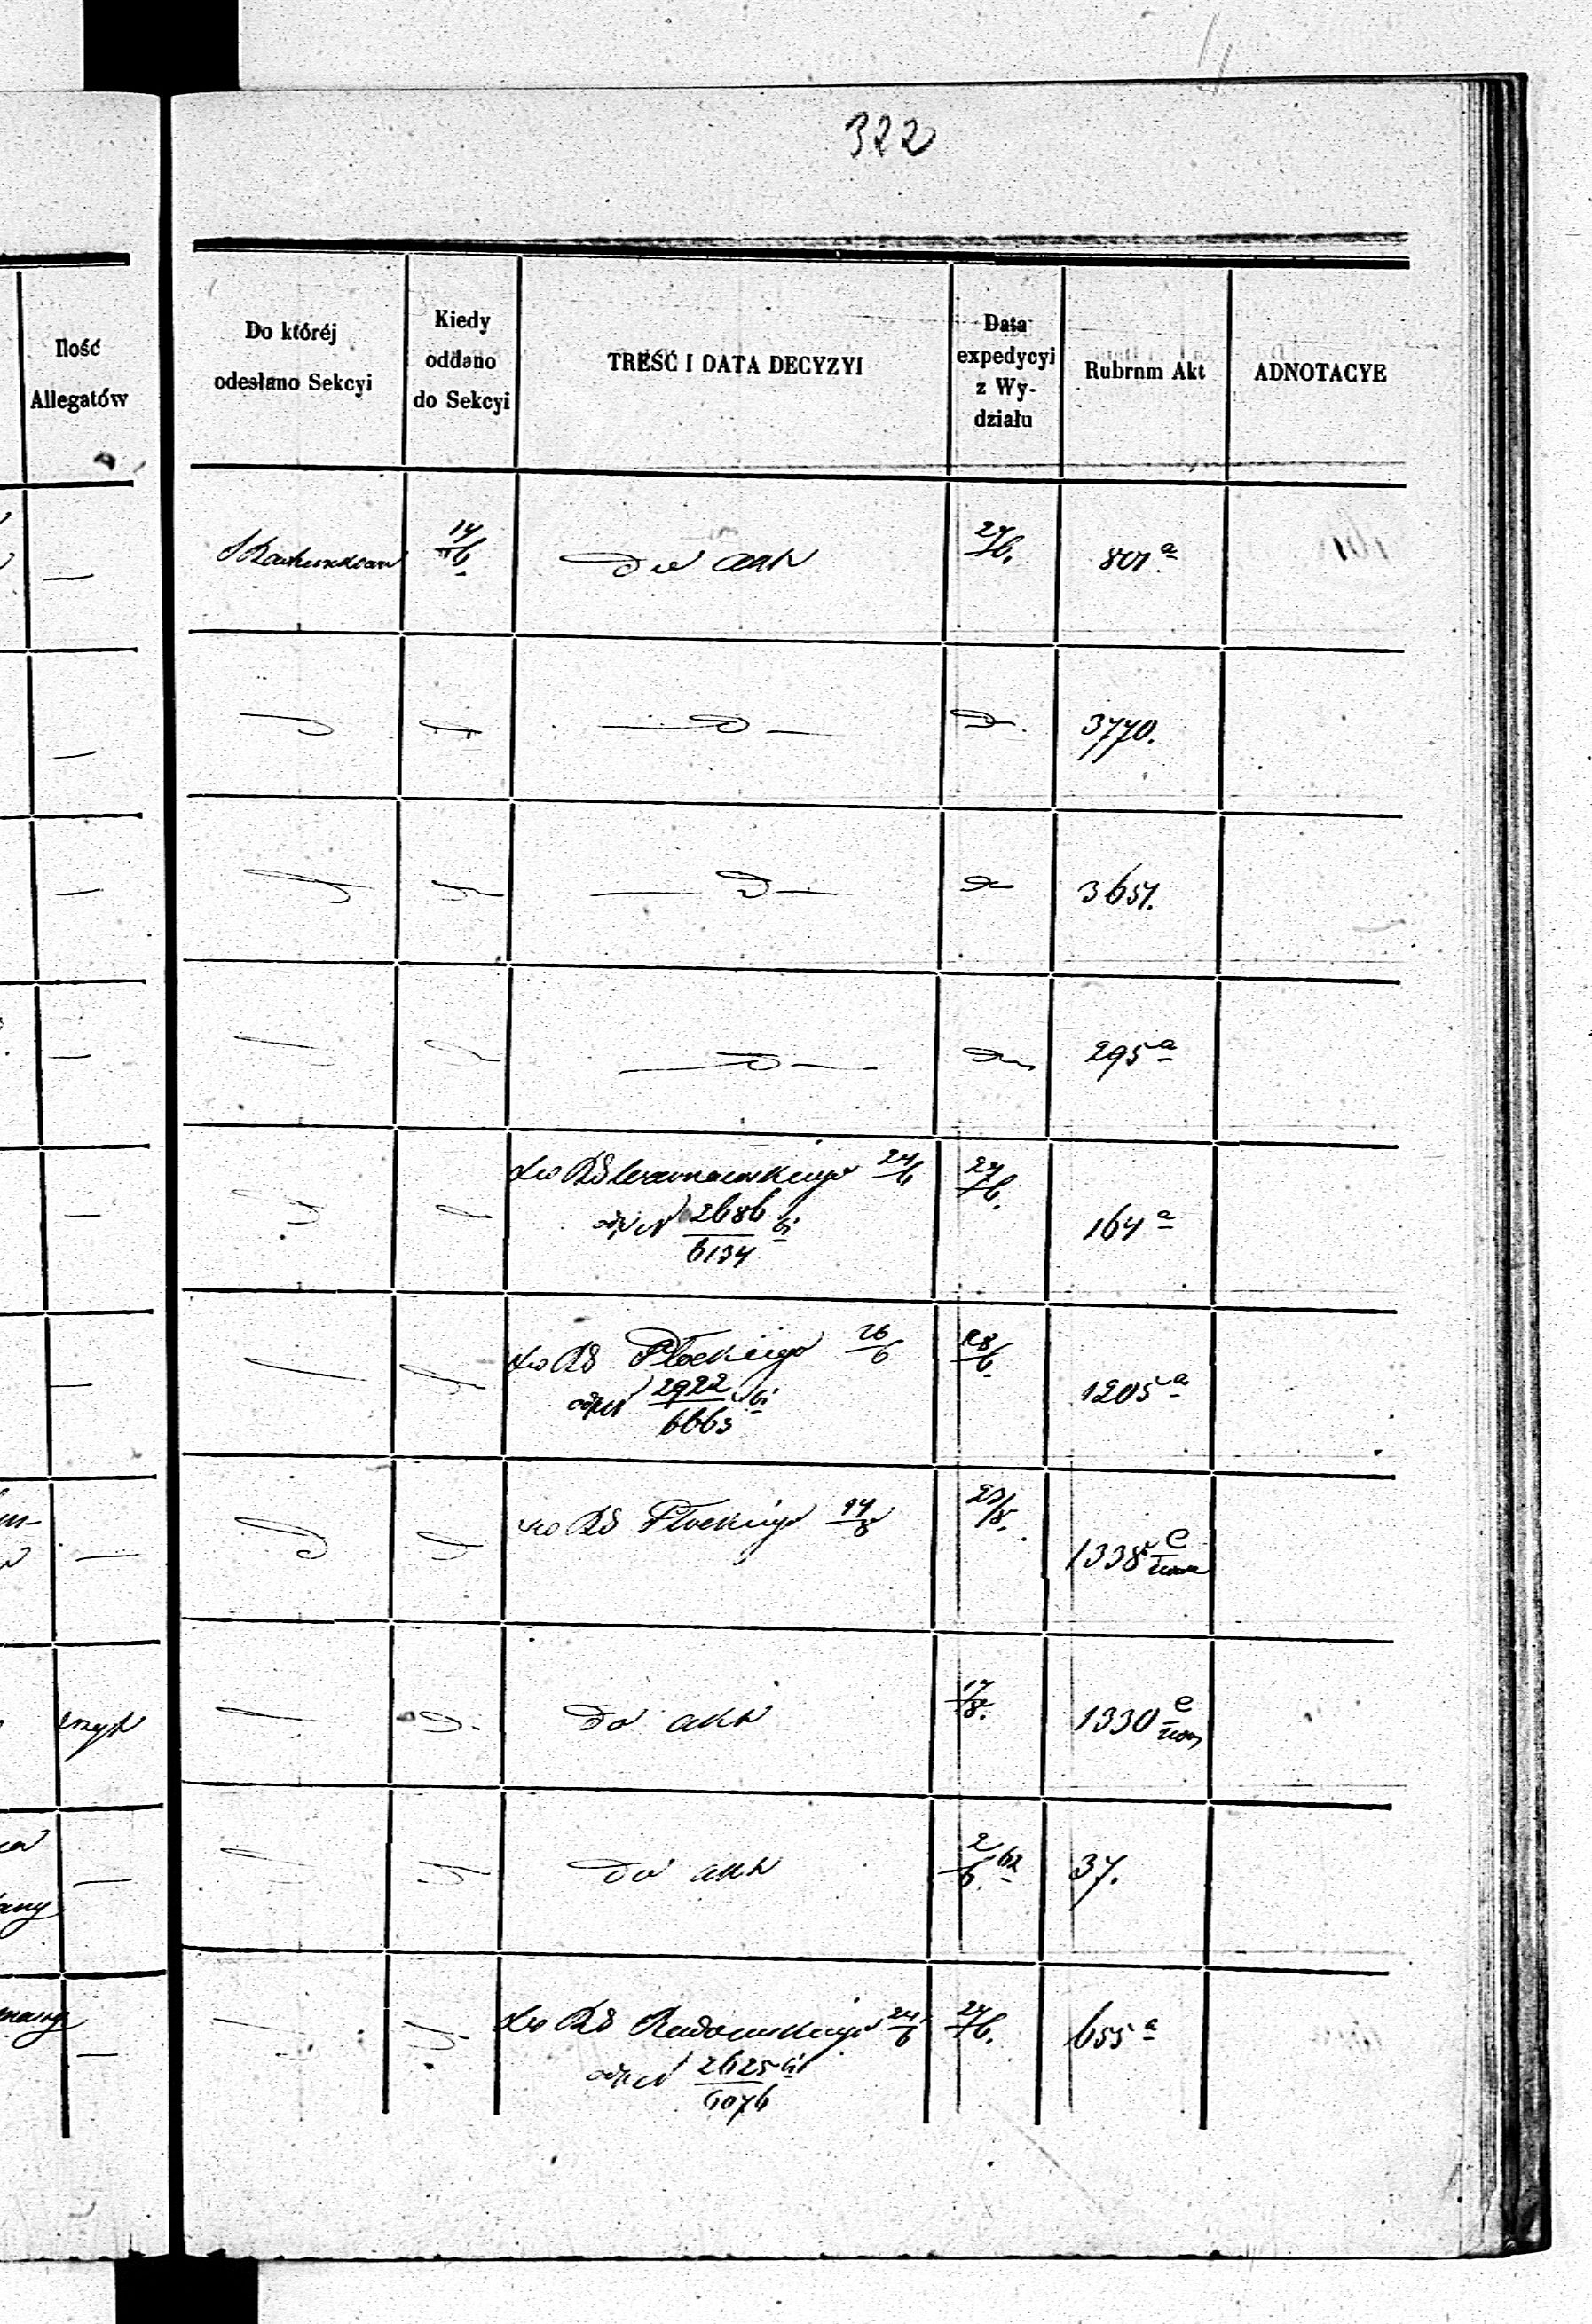 322
Ilość
Allegatów
Do któréj
odesłano Sekcyi
Kiedy
oddano
do Sekcyi
TREŚĆ I DATA DECYZYI
Data
expedycyi
z Wy-
działu
Rubrum Akt
ADNOTACYE
14/6
do akt
27/6.
801 a
D
3770.
D
3657.
D
295 a
do RG Warszawskiego 24/6
odp N 2686/6134 bi
27/6.
164 a
do RG Płockiego 26/6
odp N 2922/6663 bi
28/6.
1205 a
do RG Płockiego 14/8
23/8.
1338 e
do akt
17/8.
1330 e
do akt
2/6. 62
37.
do RG Radomskiego 24/6
odp N 2625/6076 bi
27/6.
655 a